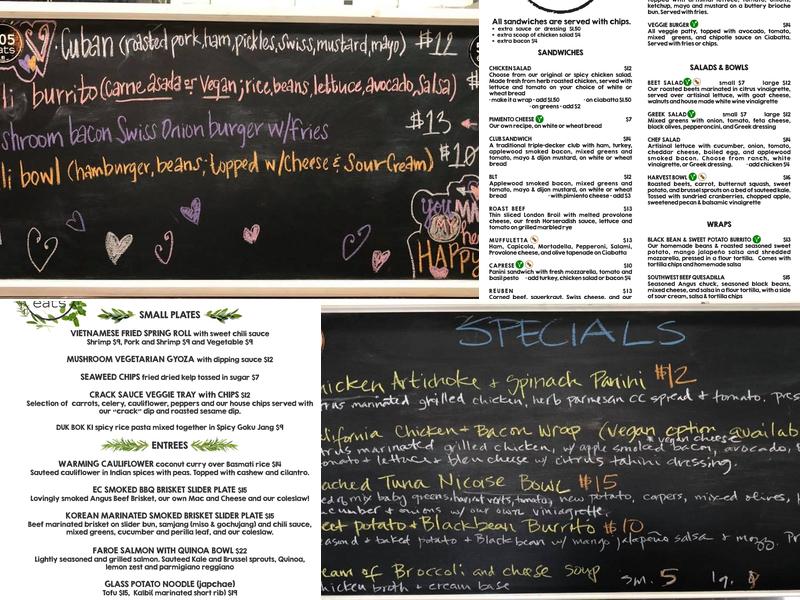 05
eats
Cuban (roasted pork, ham, pickles, Swiss, mustard, mayo) $12
li burrito (carne asada or vegan; rice, beans, lettuce, avocado, salsa) $
shroom bacon Swiss Onion burger w/fries $13
li bowl (hamburger, beans; topped w/cheese & Sour Cream) $10
you
MY
HAPPY
All sandwiches are served with chips.
• extra sauce or dressing $1.50
• extra scoop of chicken salad $4
• extra bacon $4
SANDWICHES
CHICKEN SALAD $12
Choose from our original or spicy chicken salad.
Made fresh from herb roasted chicken, served with
lettuce and tomato on your choice of white or
wheat bread
-make it a wrap - add $1.50 - on ciabatta $1.50
- on greens - add $2
PIMIENTO CHEESE $7
Our own recipe, on white or wheat bread
CLUB SANDWICH $14
A traditional triple-decker club with ham, turkey,
applewood smoked bacon, mixed greens and
tomato, mayo & dijon mustard, on white or wheat
bread
BLT $12
Applewood smoked bacon, mixed greens and
tomato, mayo & dijon mustard, on white or wheat
bread - with pimiento cheese - add $3
ROAST BEEF $13
Thin sliced London Broil with melted provolone
cheese, our fresh horseradish sauce, lettuce and
tomato on grilled marbled rye
MUFFULETTA $13
Ham, Capicola, Mortadella, Pepperoni, Salami,
Provolone cheese, and olive tapenade on Ciabatta
CAPRESE $10
Panini sandwich with fresh mozzarella, tomato and
basil pesto - add turkey, chicken salad or bacon $4
REUBEN $13
Corned beef, sauerkraut, Swiss cheese, and our
ketchup, mayo and mustard on a buttery brioche
bun. Served with fries.
VEGGIE BURGER $14
All veggie patty, topped with avocado, tomato,
mixed greens, and chipotle sauce on Ciabatta.
Served with fries or chips.
SALADS & BOWLS
BEET SALAD small $7 large $12
Our roasted beets marinated in citrus vinaigrette,
served over artisinal lettuce, with goat cheese,
walnuts and house made white wine vinaigrette
GREEK SALAD small $7 large $12
Mixed greens with onion, tomato, feta cheese,
black olives, pepperoncini, and Greek dressing
CHEF SALAD $14
Artisinal lettuce with cucumber, onion, tomato,
cheddar cheese, boiled egg, and applewood
smoked bacon. Choose from ranch, white
vinaigrette, or Greek dressing. - add chicken $4
HARVEST BOWL $16
Roasted beets, carrot, butternut squash, sweet
potato, and brussel sprouts on a bed of sauteed kale.
Tossed with sundried cranberries, chopped apple,
sweetened pecan & balsamic vinaigrette
WRAPS
BLACK BEAN & SWEET POTATO BURRITO $13
Our homemade beans & roasted seasoned sweet
potato, mango jalapeño salsa and shredded
mozzarella, pressed in a flour tortilla. Comes with
tortilla chips and homemade salsa
SOUTHWEST BEEF QUESADILLA $15
Seasoned Angus chuck, seasoned black beans,
mixed cheese, and salsa in a flour tortilla, with a side
of sour cream, salsa & tortilla chips
eats
SMALL PLATES
VIETNAMESE FRIED SPRING ROLL with sweet chili sauce
Shrimp $9, Pork and Shrimp $9 and Vegetable $9
MUSHROOM VEGETARIAN GYOZA with dipping sauce $12
SEAWEED CHIPS fried dried kelp tossed in sugar $7
CRACK SAUCE VEGGIE TRAY with CHIPS $12
Selection of carrots, celery, cauliflower, peppers and our house chips served with
our "crack" dip and roasted sesame dip.
DUK BOK KI spicy rice pasta mixed together in Spicy Goku Jang $9
ENTREES
WARMING CAULIFLOWER coconut curry over Basmati rice $14
Sauteed cauliflower in Indian spices with peas. Topped with cashew and cilantro.
EC SMOKED BBQ BRISKET SLIDER PLATE $15
Lovingly smoked Angus Beef Brisket, our own Mac and Cheese and our coleslaw!
KOREAN MARINATED SMOKED BRISKET SLIDER PLATE $15
Beef marinated brisket on slider bun, samjang (miso & gochujang) and chili sauce,
mixed greens, cucumber and perilla leaf, and our coleslaw.
FAROE SALMON WITH QUINOA BOWL $22
Lightly seasoned and grilled salmon. Sauteed Kale and Brussel sprouts, Quinoa,
lemon zest and parmigiano reggiano
GLASS POTATO NOODLE (japchae)
Tofu $15, Kalbi( marinated short rib) $19
SPECIALS
hicken Artichoke + Spinach Panini $12
rus marinated grilled chicken, herb parmesan cc spread + tomato. Pres
lifornia Chicken + Bacon Wrap (vegan option availab
* vegan cheese
trus marinated grilled chicken, w/ apple smoked bacon, avocado,
omato + lettuce + bleu cheese w/ citrus tahini dressing.
ached Tuna Nicoise Bowl $15
mix baby greens, haricot verts, tomato, new potato, capers, mixed olives,
cumber + onions w/ our own vinaigrette.
eet potato + Blackbean Burrito $10
eason d + baked potato + Blackbean w/ mango jalapeño salsa + mozz. Pr
eam of Broccoli and cheese soup sm. 5 lg.
hicken broth + cream base